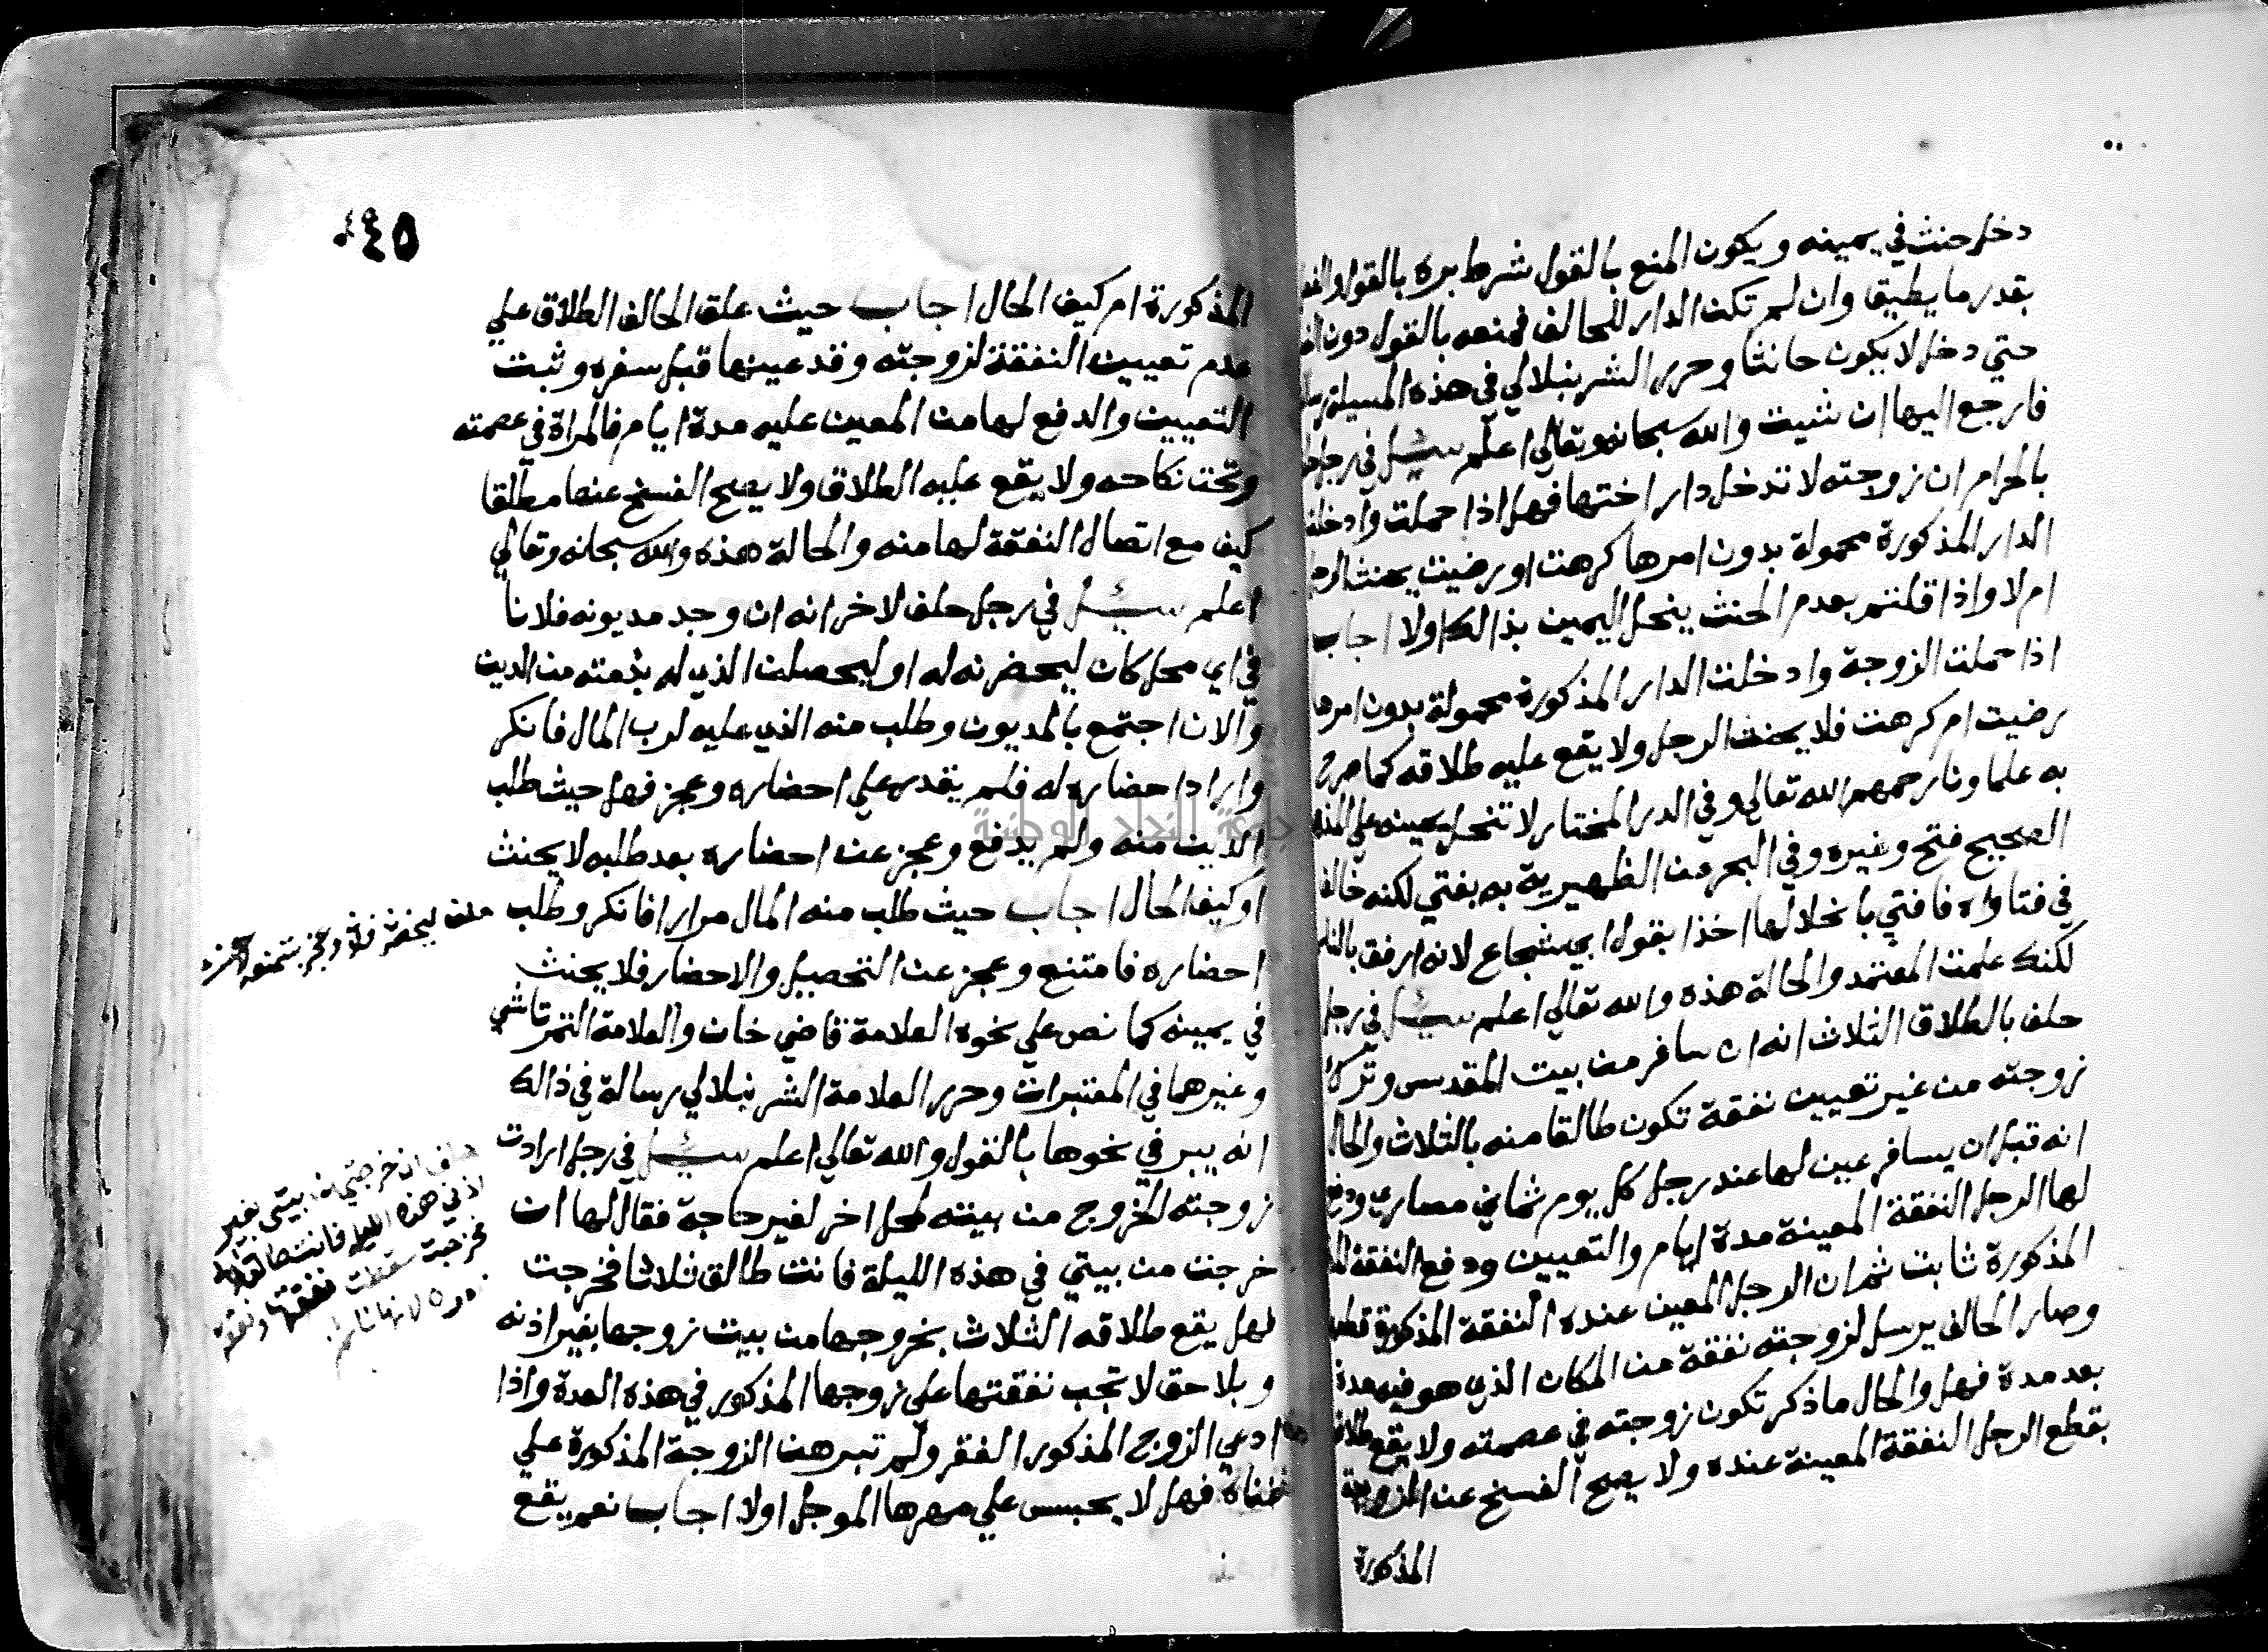 دخل حنث في يمينه ويكون المنع بالقول شرط بره بالقول والفعل
بقدر ما يطيق وان لم تكن الدار للحالف فمنعه بالقول دون
حتي دخل لا يكون حانثا وحرر الشرنبلالي في هذه المسيلة
فارجع اليها ان شئت والله سبحانه وتعالي اعلم سئل في رجل
بالحرام ان زوجته لا تدخل دار اختها فهل اذا حملت وادخلت
الدار المذكورة محمولة بدون امرها كرهت او رضيت يحنث الرجل
ام لا واذا قلتم بعدم الحنث ينحل اليمين بذالك اولا اجاب
اذا حملت الزوجة وادخلت الدار المذكورة محمولة بدون امرها
رضيت ام كرهت فلا يحنث الرجل ولا يقع عليه طلاقه كما صرح
به علماونا رحمهم الله تعالي وفي الدر المختار لا تنحل يمينه علي المذهب
الصحيح فتح وغيره وفي البحر من الظهيرية به يفتي لكنه خالف
في فتاواه فافتي بانحلالها اخذا بقول ابي شجاع لانه ارفق
لكنك علمت المعتمد والحالة هذه والله تعالي اعلم سئل في رجل
حلف بالطلاق الثلاث انه ان سافر من بيت المقدس وترك
زوجته من غير تعيين نفقة تكون طالقا منه بالثلاث والحال
انه قبل ان يسافر عين لها عند رجل كل يوم ثماني مصاري ودفع
لها الرجل النفقة المعينة مدة ايام والتعيين ودفع النفقة
المذكورة ثابت ثم ان الرجل المعين عنده النفقة المذكورة قطع
وصار الحالف يرسل لزوجته نفقة من المكان الذي هو فيه مدة
بعد مدة فهل والحال ما ذكر تكون زوجته في عصمته ولا يقع طلاق
بقطع الرجل النفقة المعينة عنده ولا يصح الفسخ عن الزوجة
المذكورة
٤٥
المذكورة ام كيف الحال اجاب حيث علق الحالف الطلاق علي
عدم تعيين النفقة لزوجته وقد عينها قبل سفره وثبت
التعيين والدفع لها من المعين عليه مدة ايام فالمراة في عصمته
وتحت نكاحه ولا يقع عليه الطلاق ولا يصح الفسخ عنها مطلقا
كيف مع اتصال النفقة لها منه والحالة هذه والله سبحانه وتعالي
اعلم سئل في رجل حلف لاخر انه ان وجد مديونه فلانا
في اي محل كان ليحضرنه له او ليحصلن الذي له بذمته من الدين
والان اجتمع بالمديون وطلب منه الذي عليه لرب المال فانكر
واراد احضاره له فلم يقدر علي احضاره وعجز فهل حيث طلب
الدين منه ولم يدفع وعجز عن احضاره بعد طلبه لا يحنث
او كيف الحال اجاب حيث طلب منه المال مرارا فانكر وطلب
احضاره فامتنع وعجز عن التحصيل والاحضار فلا يحنث
في يمينه كما نص علي نحوه العلامة قاضي خان والعلامة التمرتاشي
وغيرهما في المعتبرات وحرر العلامة الشرنبلالي رسالة في ذالك
انه يبر في نحوها بالقول والله تعالي اعلم سئل في رجل ارادت
زوجته الخروج من بيته لمحل اخر لغير حاجة فقال لها ان
خرجت من بيتي في هذه الليلة فانت طالق ثلاثا فخرجت
فهل يقع طلاقه الثلاث بخروجها من بيت زوجها بغير اذنه
وبلا حق لا تجب نفقتها علي زوجها المذكور في هذه المدة واذا
ادعي الزوج المذكور الفقر ولم تبرهن الزوجة المذكورة علي
غناه فهل لا يحبس علي مهرها الموجل اولا اجاب نعم يقع
حلف ليحضر فلانا وعجز
حلف ان خرجتي من بيتي بغير
اذني هذه الليله فانت طالق
فخرجت سقطت نفقتها
جامعة النجاح الوطنية